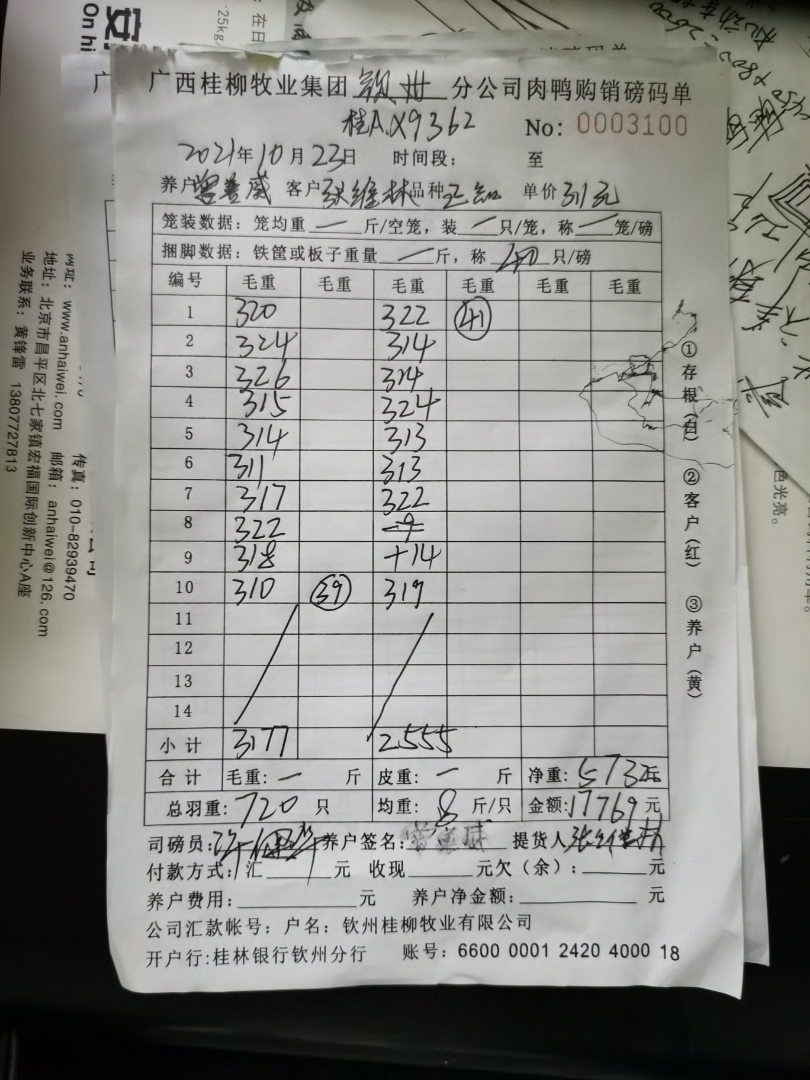 广西桂柳牧业集团 钦州 分公司肉鸭购销磅码单
桂A.X9362 No: 0003100
2021年10月23日 时间段: 至
养户 客户 张维林 品种 单价 3.1元
笼装数据: 笼均重 — 斤/空笼, 装 — 只/笼, 称 — 笼/磅
捆脚数据: 铁筐或板子重量 — 斤, 称 40 只/磅
编号 毛重 毛重 毛重 毛重 毛重 毛重
1 320 322 41
2 324 314
3 326 314
4 315 324
5 314 313
6 311 313
7 317 322
8 322 -9
9 318 +14
10 310 39 319
11
12
13
14
小计 3177 2555
合计 毛重: — 斤 皮重: — 斤 净重: 5732斤
总羽重: 720 只 均重: 8 斤/只 金额: 17769 元
司磅员: 养户签名: 提货人 张维林
付款方式: 汇 元 收现 元欠(余): 元
养户费用: 元 养户净金额: 元
公司汇款帐号: 户名: 钦州桂柳牧业有限公司
开户行:桂林银行钦州分行 账号: 6600 0001 2420 4000 18
①存根(白) ②客户(红) ③养户(黄)
网址: www.anhaiwei.com 传真: 010-82939470
地址: 北京市昌平区北七家镇宏福国际创新中心A座 邮箱: anhaiwei@126.com
业务联系: 黄锋雷 13807727813
On hi
·25kg/
在日
色光亮。